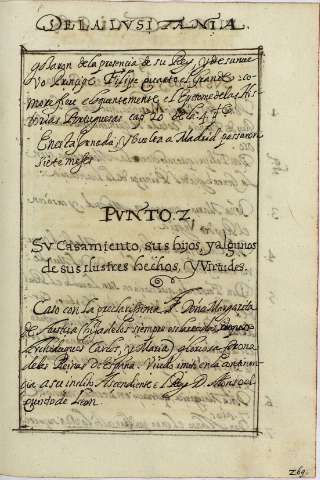 DE LA LUSITANIA.
gozaron de la presencia de su Rey, y de su nue
vo Principe Filipe quarto el Grande: co-
mo refiere eloquentemente el Epitome de las His
torias Portuguesas cap. 20 de la 4. p.
En esta jornada, y buelta a Madrid passaron
siete meses
PVNTO 2,
Sv Casamiento, sus hijos, y algunos
de sus ilustres hechos, y Virtudes.
Caso con la preclarissima D. Doña Margarita
de Austria (hija de los siempre esclarecidos
Archiduques Carlos, y Maria) gloriosa
de los Reinos de España. Viudo imitò en la continen
cia a su inclito Ascendiente el Rey D. Alonso el
de Leon
269.